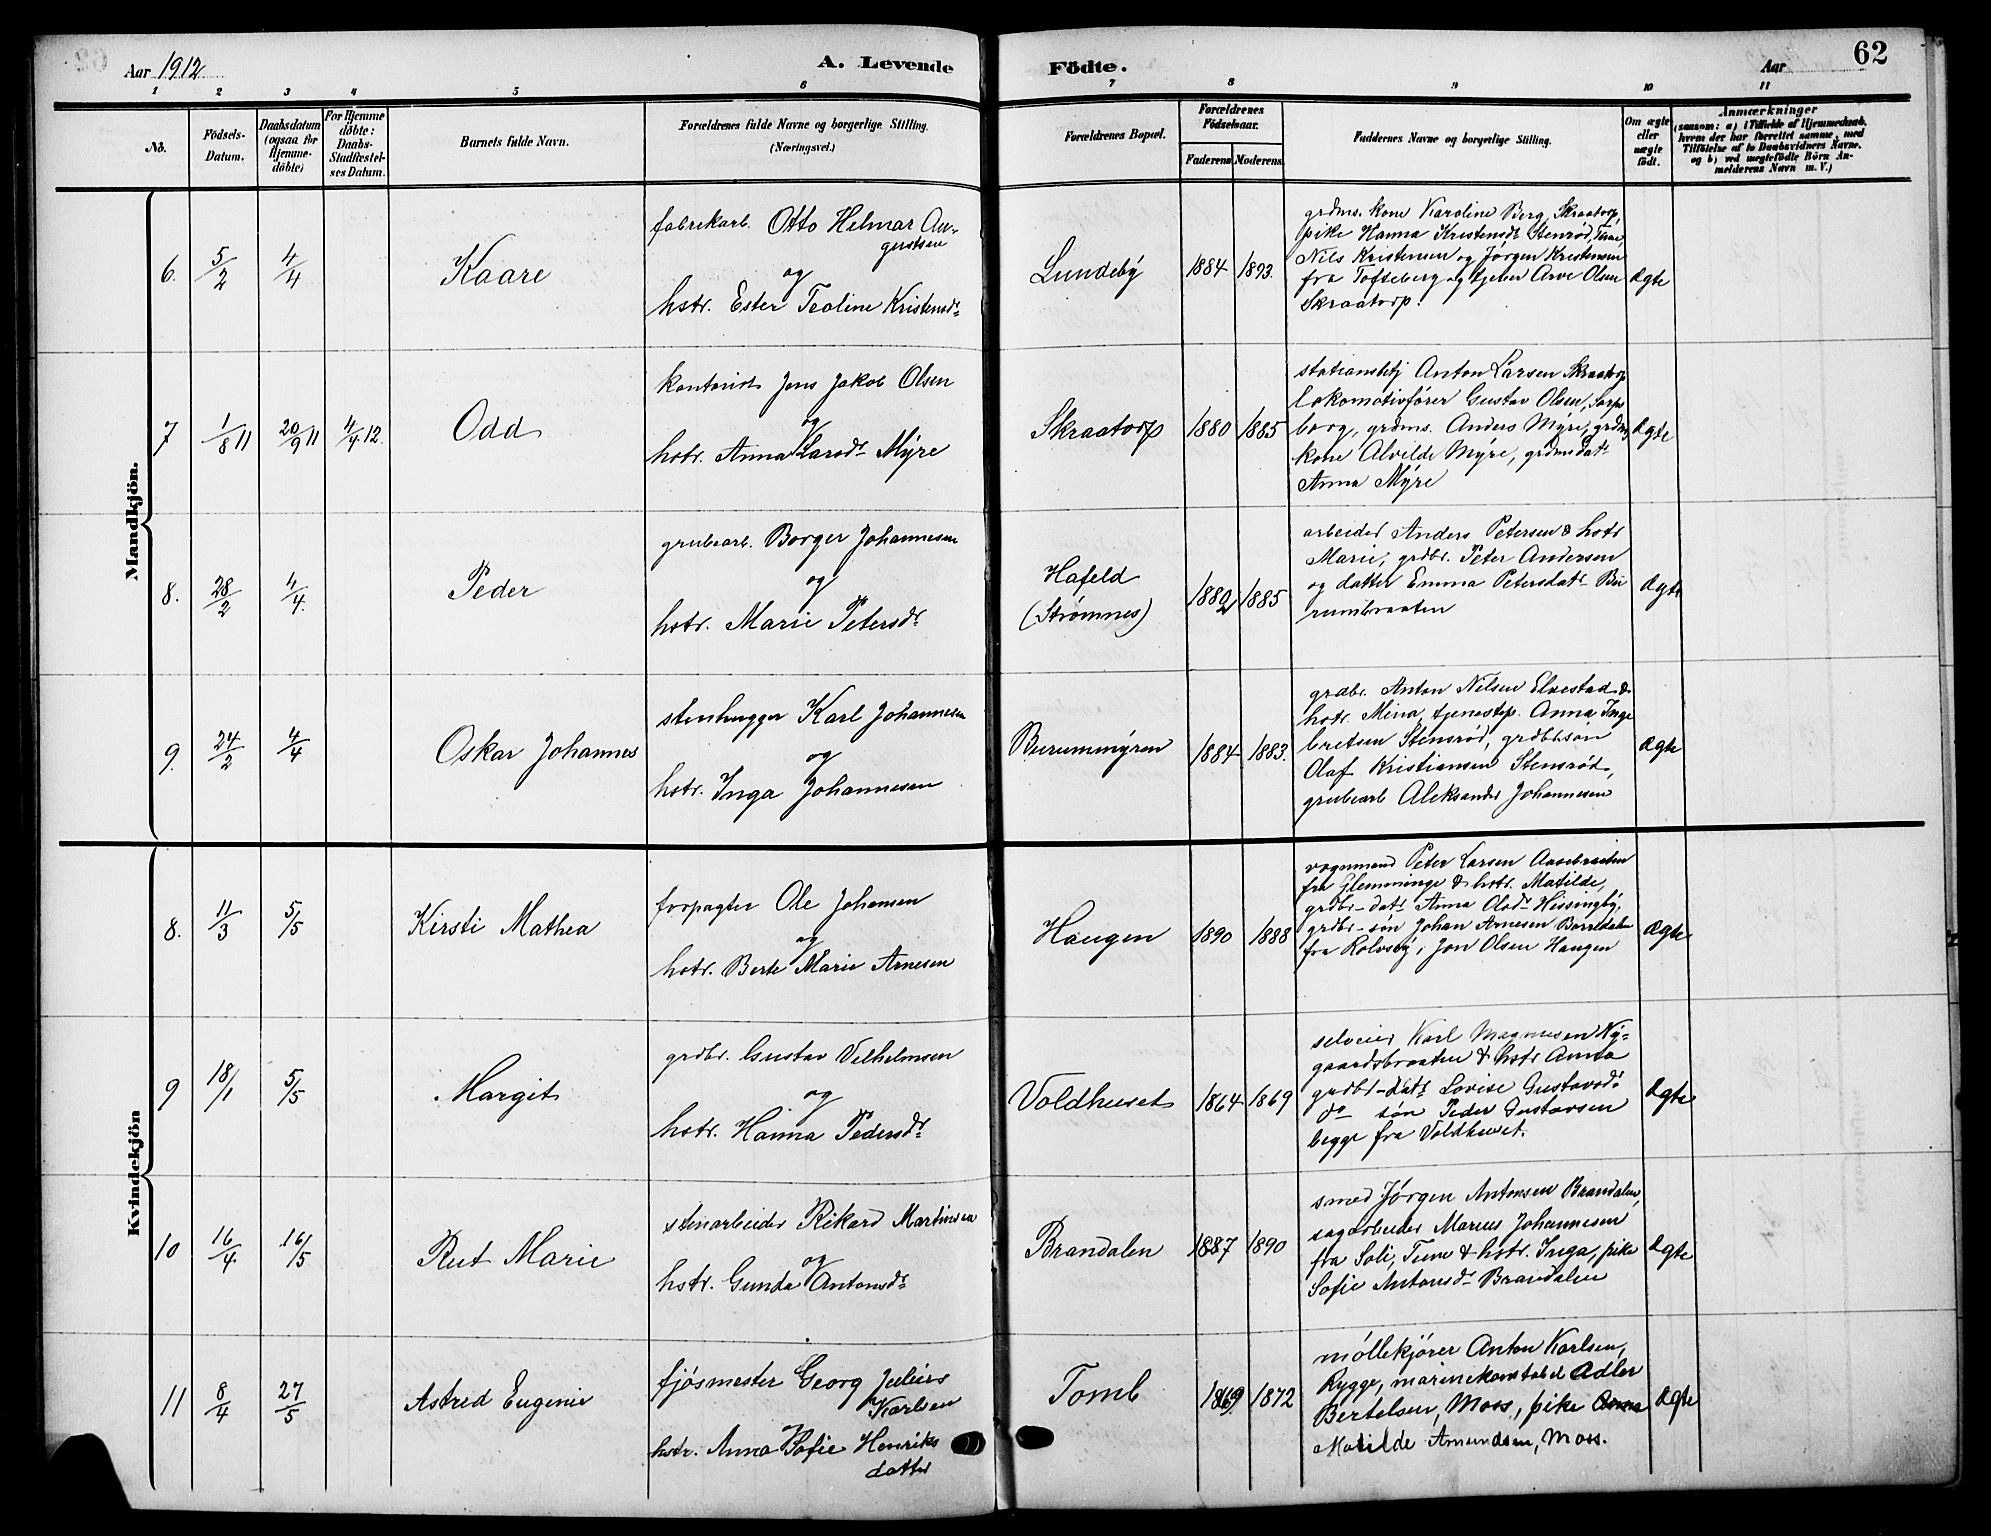 Aar 1912
A. Levende Födte.
Aar
62
1 2 3 4 5 6 7 8 8 9 10 11
No.
Födsels-
Datum.
Daabsdatum
(ogsaa for
Hjemme-
döbte)
For Hjemme
döbte:
Daabs-
Stadfæstel-
ses Datum.
Barnets fulde Navn.
Forældrenes fulde Navne og borgerlige Stilling.
(Næringsvei.)
Forældrenes Bopæl.
Forældrenes
Födselsaar.
Faderens
Moderens
Faddernes Navne og borgerlige Stilling.
Om ægte
eller
uægte
födt.
Anmærkninger
(saasom: a) i Tilfælde af Hjemmedaab,
hvem der har forrettet samme, med
Tilföielse af to Daabsvidners Navne.
og b) ved uægtefödte Börn An-
melderens Navn m. V.)
Mandkjön.
6. 5/2 4/4 Kaare
fabrekarb. Otto Helmar Au-
gustsen
og
hstr. Ester Teoline Kristensdr
Lundeby 1884 1893.
grdms. kone Karoline Berg, Skraatorp,
pike Hanna Kristensdr Stenrød, Tune,
Nils Kristensen og Jørgen Kristensen
fra Tofteberg og tjener Arve Olsen
Skraatorp.
ægte
7 1/8 11 20/9 11 4/4 12. Odd
kontorist Jens Jakob Olsen
og
hstr. Anna Larsdr Myre
Skraatorp 1880 1885
stationsbtj Anton Larsen Skraatorp
lokomotivfører Gustav Olsen, Sarps
borg, grdms. Anders Myre, grdms
kone Alvilde Myre, grdms datr
Anna Myre
ægte
8. 28/2 4/4. Peder
grubearb. Borger Johannesen
og
hstr. Marie Petersdr
Hafeld
(Strømnes)
1882 1885
arbeider Anders Petersen & hstr
Marie, grdbr. Peter Andersen
og datter Emma Petersdatr Bu
rumbraaten
ægte
9. 24/2 4/4 Oskar Johannes
stenhugger Karl Johannesen
og
hstr. Inga Johannesen
Burummyren 1884 1883.
grdbr. Anton Nilsen Elvestad &
hstr. Mina, tjenestep. Anna Inge
bretsen Stensrød, grdbrsøn
Olaf Kristiansen Stensrød,
grubearb Aleksander Johannesen
ægte
Kvindekjön
8. 11/3 5/5 Kirsti Mathea
forpagter Ole Johansen
og
hstr. Berte Marie Arnesen
Haugen 1890 1888
vognmand Peter Larsen Aasebraaten
fra Glemminge & hstr. Matilde,
grdbr-datr Anna Olsdr Hissingby,
grdbr-søn Johan Arnesen Borredalen
fra Rolvsøy, Jon Olsen Haugen
ægte
9 18/1 5/5 Margit
grdbr. Gustav Vilhelmsen
og
hstr. Hanna Pedersdr
Voldhuset 1864 1869
selveier Karl Magnusen Ny-
gaardsbraaten & hstr Anna
grdbr-datr Lovise Gustavsdr
do søn Peder Gustavsen
begge fra Voldhuset.
ægte
10 16/4 16/5 Rut Marie
stenarbeider Rikard Martinsen
og
hstr. Gunda Antonsdr
Brandalen 1887 1890
smed Jørgen Antonsen Brandalen,
sagarbeider Marius Johannesen
fra Soli, Tune & hstr. Inga, pike
Sofie Antonsdr Brandalen
ægte
11 8/4 27/5 Astrid Eugenie
fjøsmester Georg Julius
Karlsen
hstr. Anna Sofie Henriks
datter
Tomb 1869 1872
møllekjører Anton Karlsen,
Rygge, marinekonstabel Adler
Bertelsen, Moss, pike Anna
Matilde Amundsen, Moss.
ægte